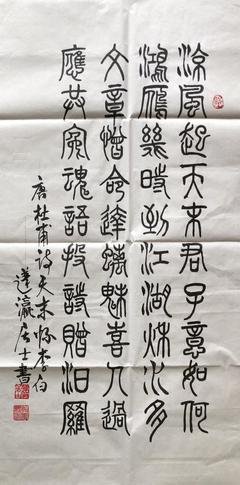 涼風起天末君子意如何
鴻雁幾時到江湖秋水多
文章憎命達魑魅喜人過
應共冤魂語投詩贈汨羅
唐杜甫詩天末懷李白
蓬瀛居士書